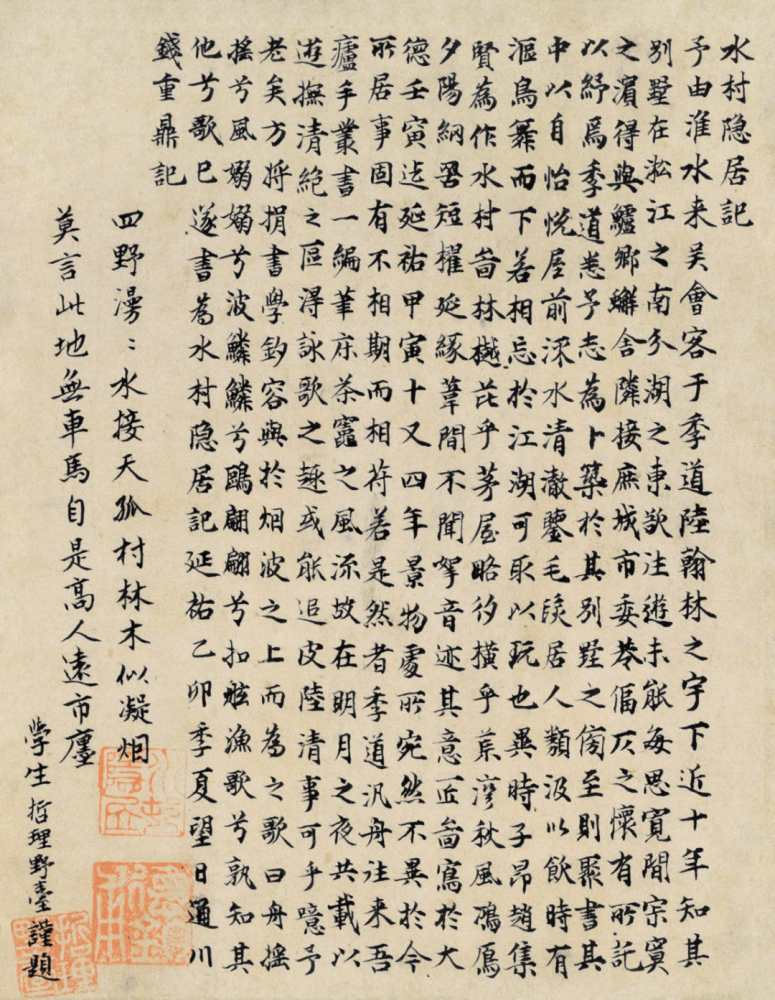 水村隐居記
予由淮水来吴會客于季道陸翰林之宇下近十年知其
别墅在淞江之南分湖之東欲注遊未能每思寛閒宗寞
之濵得與鱸鄉蠏舎隣接庶城市委巷偪仄之懷有所託
以紓焉季道悉予志為卜築於其别墅之傍至則聚書其
中以自怡悦屋前深水清澈鑒毛髮居人類汲以飲時有
漚鳥舞而下若相忘於江湖可取以玩也異時子昂趙集
賢為作水村啚林樾茈乎茅屋略彴横乎荒灣秋風鴻鴈
夕陽網罟短櫂延緣葦間不聞拏音迹其意匠啚寫於大
德壬寅迄延祐甲寅十又四年景物處所宛然不異於今
所居事固有不相期而相符若是然者季道汎舟往来吾
廬手叢書一編筆床茶竈之風流故在明月之夜共載以
遊撫清絶之區淂詠歌之趣或能追皮陸清事可乎噫予
老矣方將捐書學釣容與於烟波之上而為之歌曰舟摇
摇兮風嫋嫋兮波鱗鱗兮鷗翩翩兮扣舷漁歌兮孰知其
他兮歌已遂書為水村隐居記延祐乙卯季夏望日通川
錢重鼎記
四野漫〻水接天孤村林木似凝烟
莫言此地無車馬自是高人遠市廛
學生哲理野臺謹題